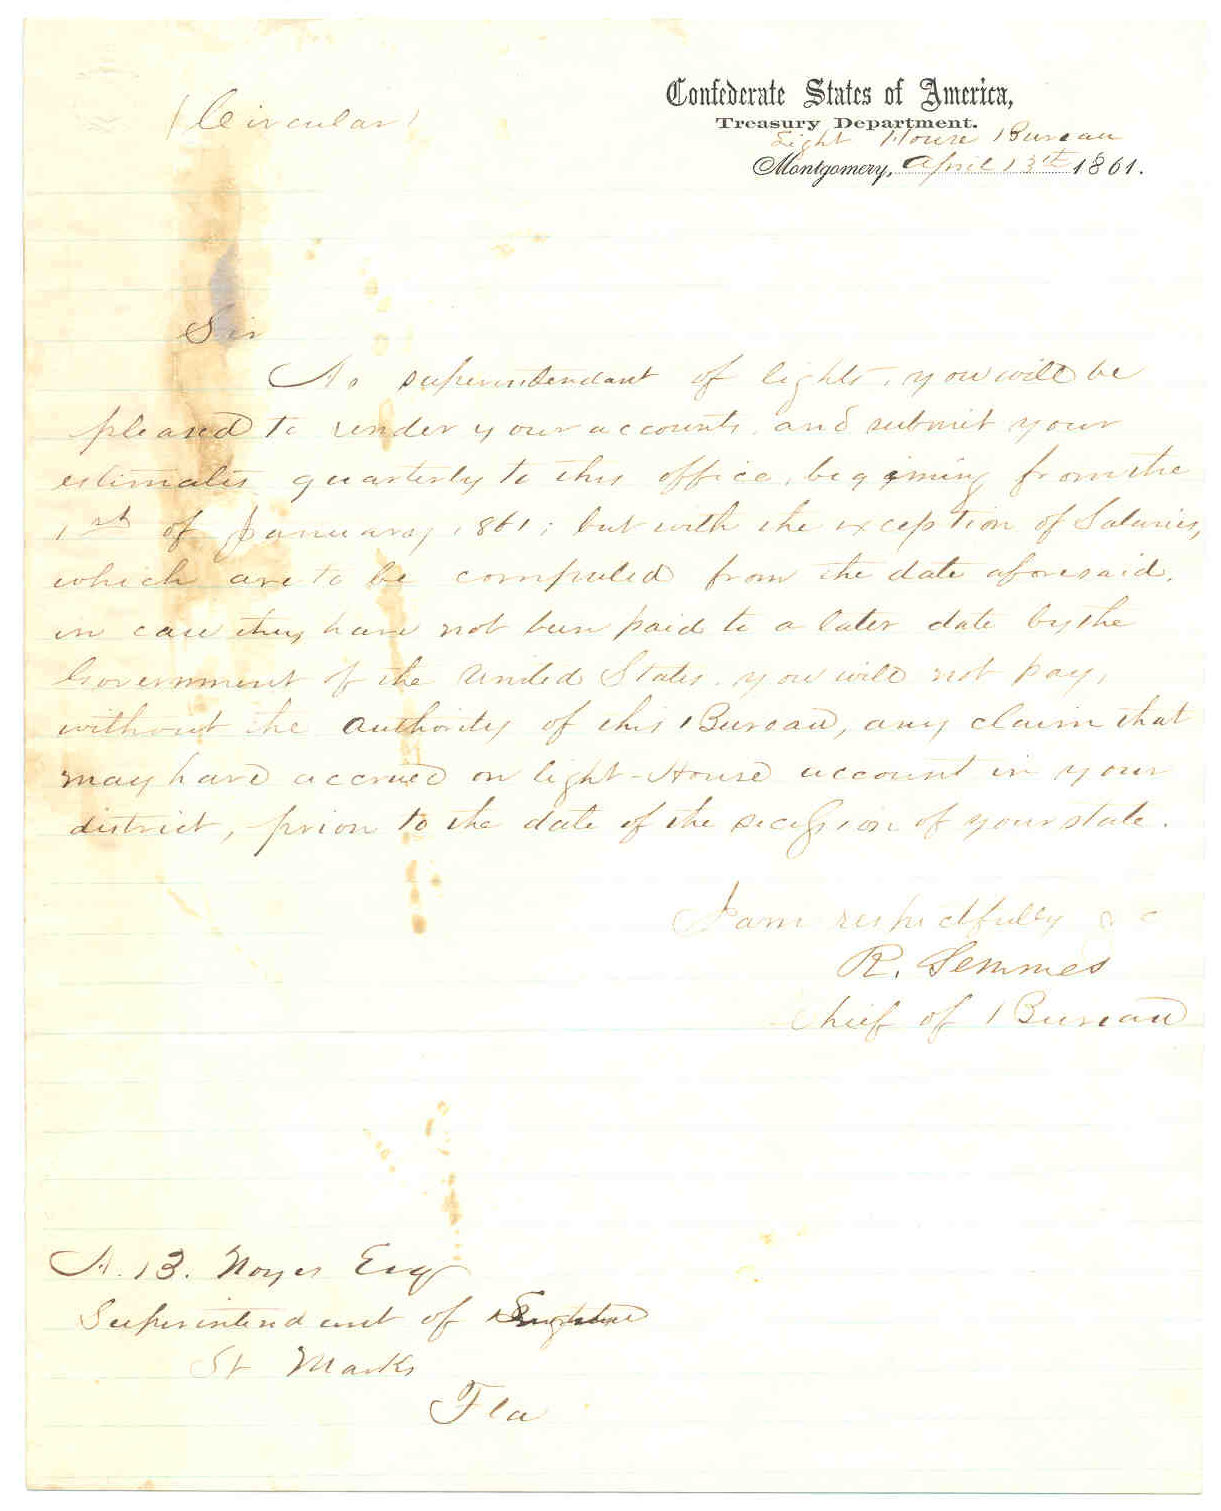 (Circular)
Confederate States of America,
Treasury Department.
Light House Bureau
Montgomery, April 13th 1861.
Sir
As superintendant of lights, you will be
pleased to render your accounts, and submit your
estimates quarterly to this office, begining from the
1st of January, 1861; but with the exception of Salaries,
which are to be computed from the date aforesaid,
in case they have not been paid to a later date by the
Government of the United States, you will not pay,
without the authority of this Bureau, any claim that
may have accrued on light-House account in your
district, prior to the date of the secession of your state.
I am respectfully &c
R. Semmes
Chief of Bureau
A. B. Noyes Esq
Superintendant of
St Marks
Fla